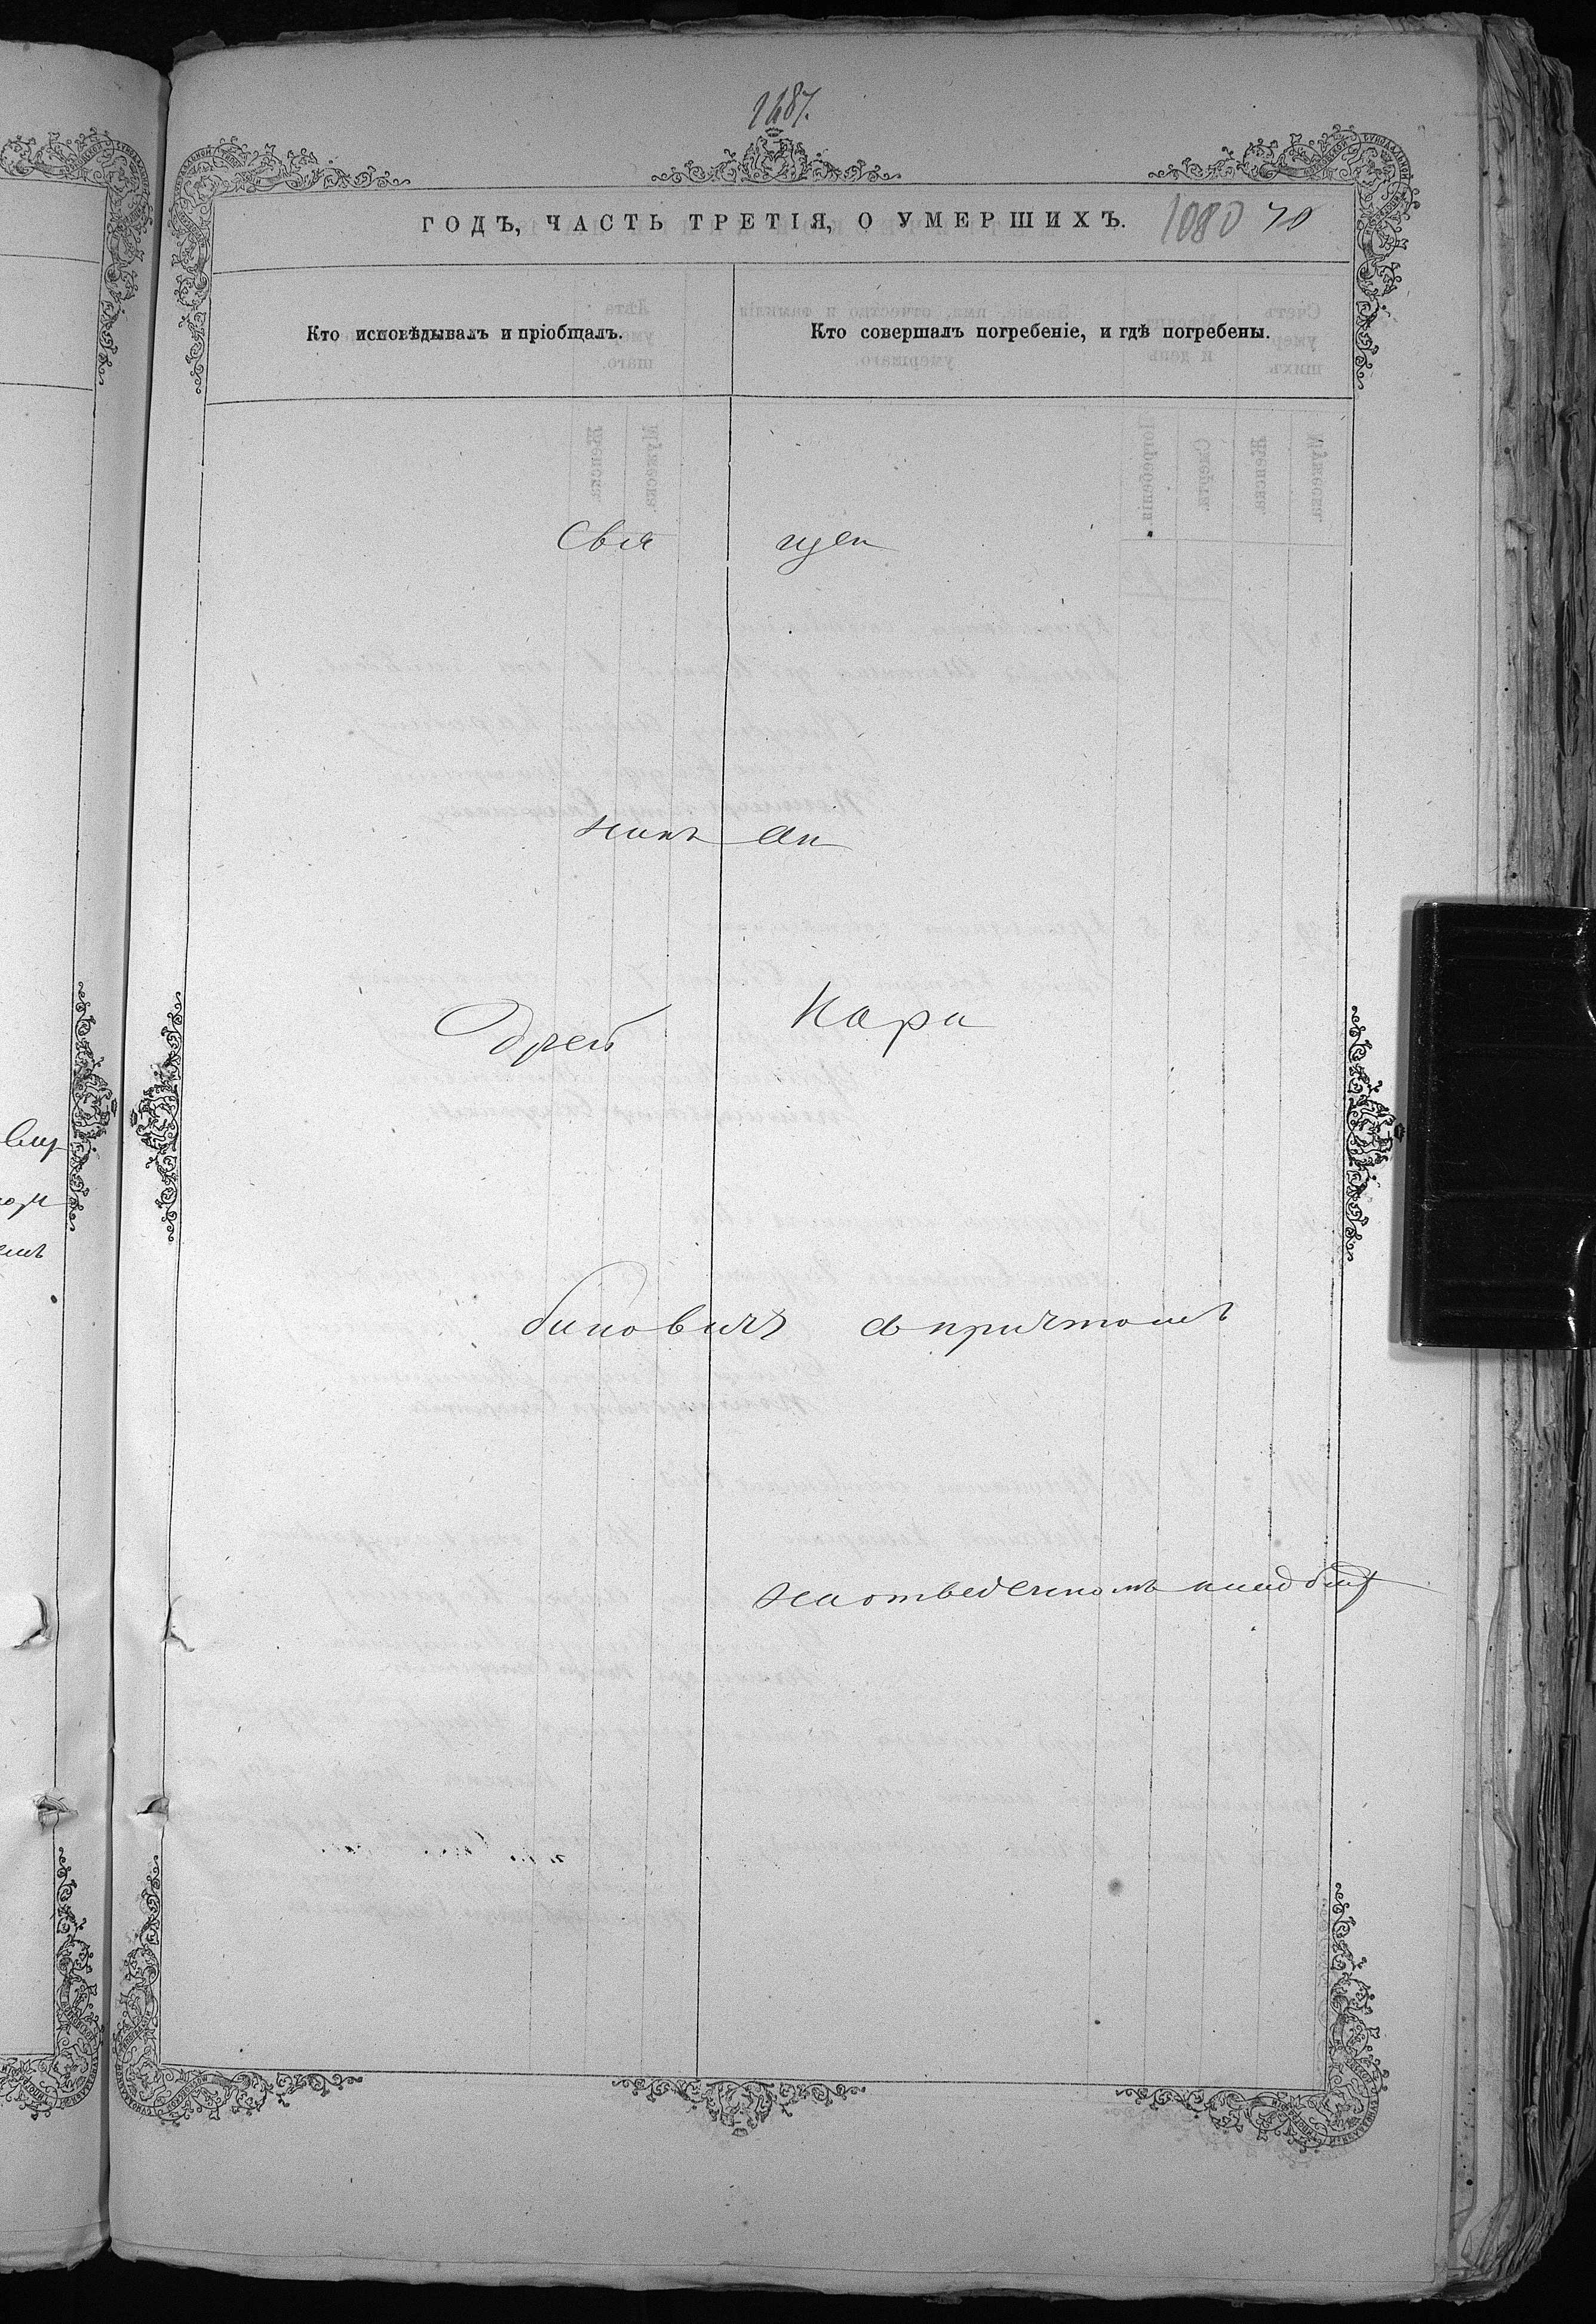 1487.
ГОДЪ, ЧАСТЬ ТРЕТІЯ, О УМЕРШИХЪ. 1080 70
Кто исповѣдывалъ и пріобщалъ. Кто совершалъ погребеніе, и гдѣ погребены.
Свя щен
никъ Ан
дрей Кара
биновичъ съ причтомъ
на отведенномъ кладбищѣ